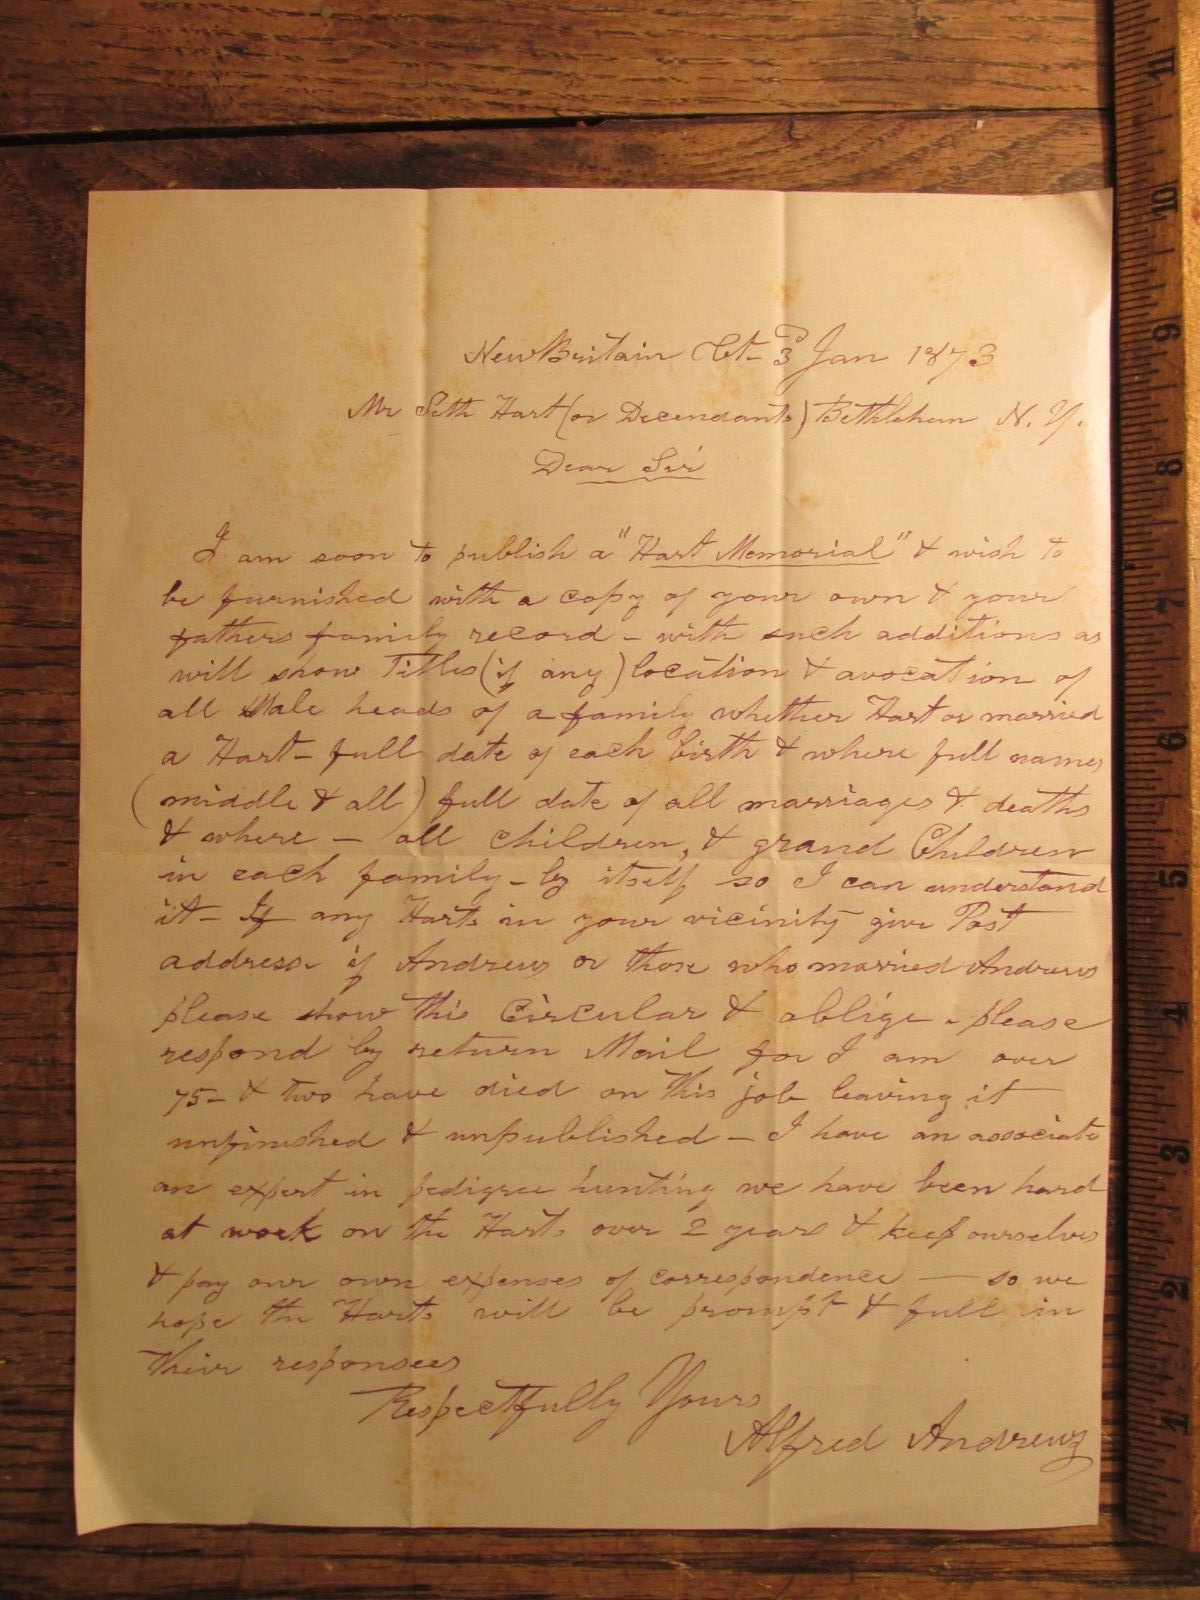 New Britain Ct- 3d Jan 1873
Mr Seth Hart (or Decendants) Bethlehem N. Y.
Dear Sir
I am soon to publish a "Hart Memorial" & wish to
be furnished with a copy of your own & your
fathers family record - with such additions as
will show Titles (if any) location & avocation of
all Male heads of a family whether Hart or married
a Hart - full date of each birth & where full names
(middle & all) full date of all marriages & deaths
& where - all children, & grand Children
in each family - by itself so I can understand
it - If any Harts in your vicinity give Post
address. if Andrews or those who married Andrews
please show this Circular & oblige - please
respond by return Mail for I am over
75 - & two have died on this job leaving it
unfinished & unpublished - I have an associate
an expert in pedigree hunting we have been hard
at work on the Harts over 2 years & keep ourselves
& pay our own expenses of correspondence - so we
hope the Harts will be prompt & full in
their responsees
Respectfully Yours
Alfred Andrews
11
10
9
8
7
6
5
4
3
2
1